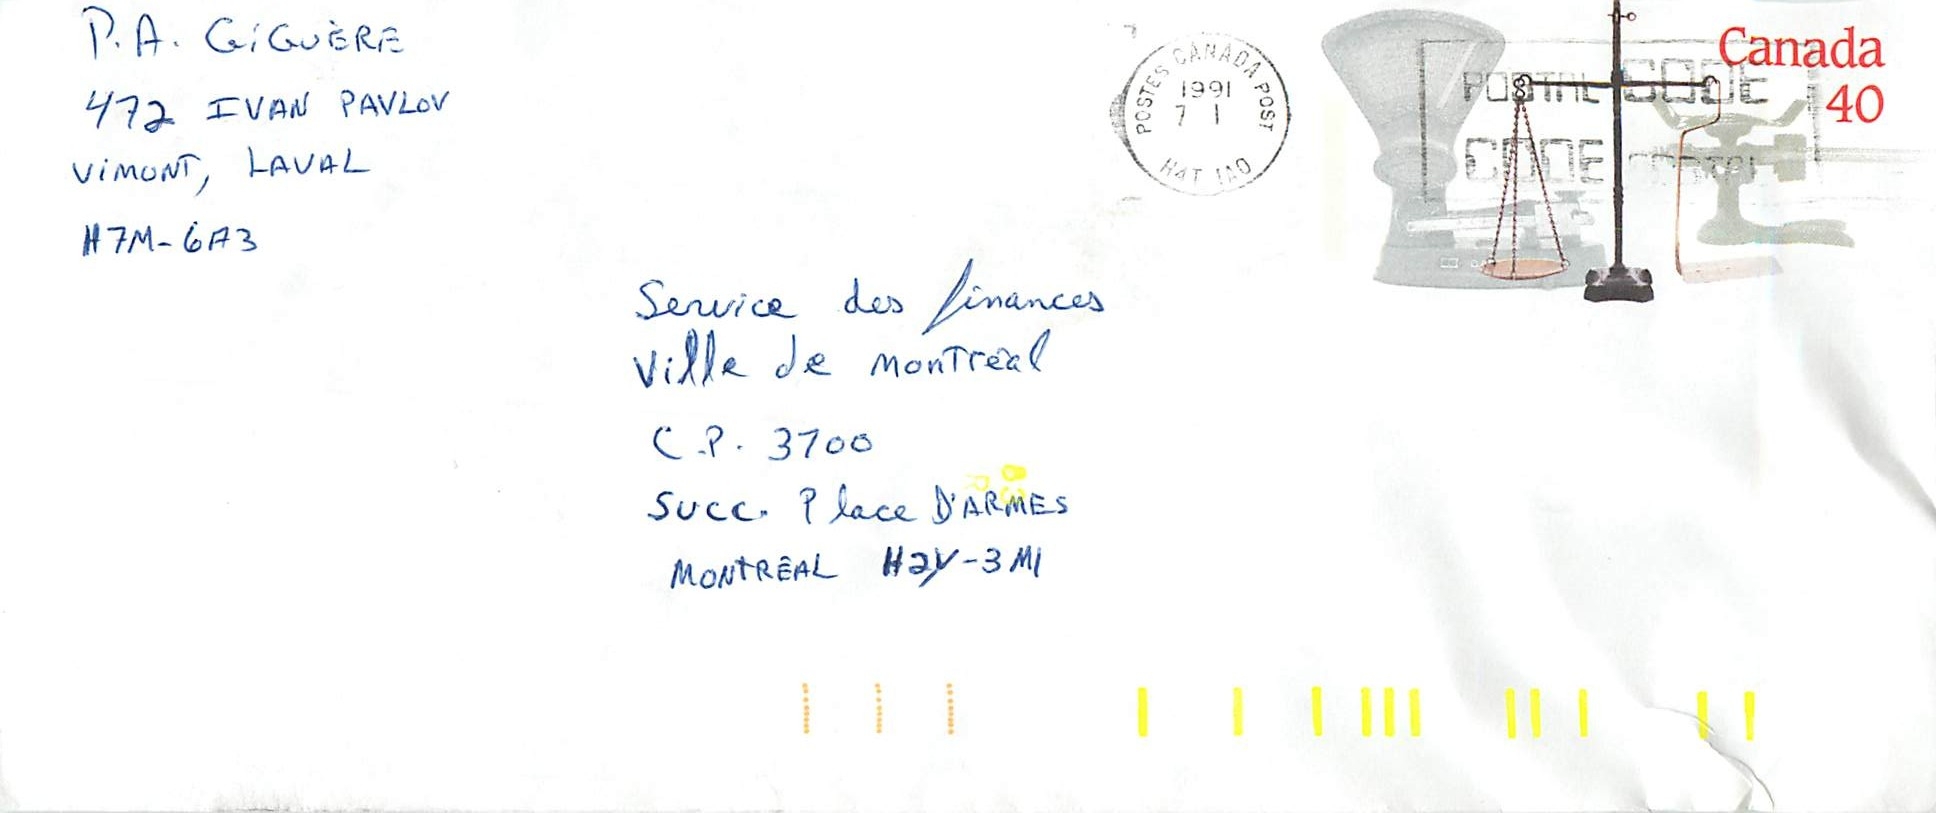 P.A. GIGUÈRE
472 IVAN PAVLOV
VIMONT, LAVAL
H7M-6A3
POSTES CANADA POST
1991
7 1
H4T 1A0
POSTAL CODE
CODE POSTAL
Canada
40
Service des finances
Ville de Montréal
C.P. 3700
Succ. Place D'ARMES
MONTRÉAL H2Y-3M1